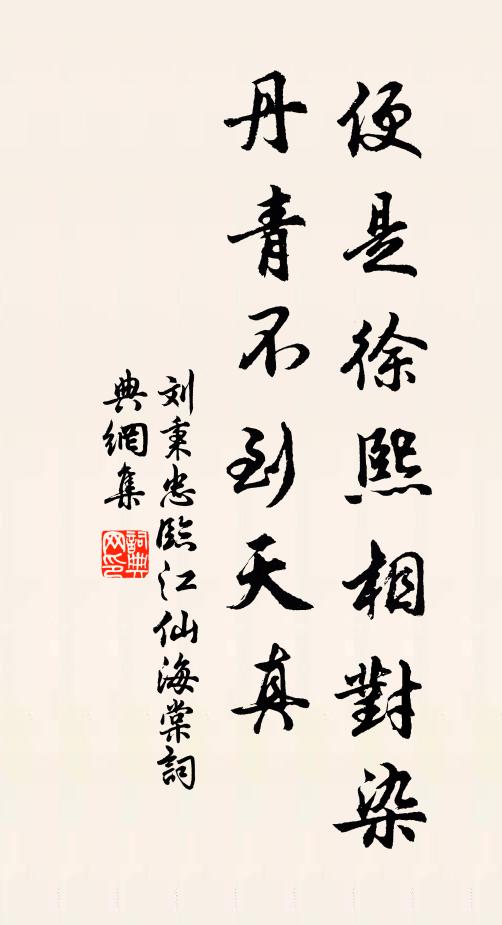 便是徐熙相對染
丹青不到天真
刘秉忠臨江仙海棠詞
典網集
詞典
网印